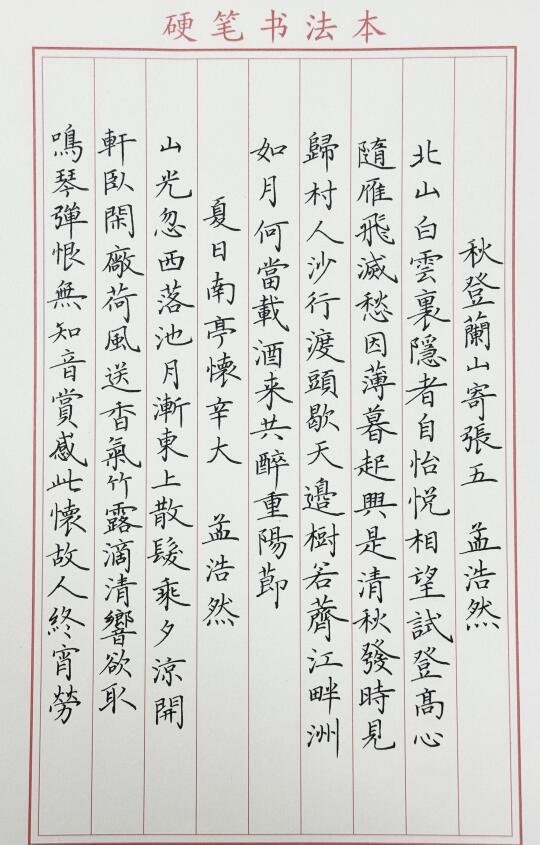 硬笔书法本
秋登蘭山寄張五 孟浩然
北山白雲裏隱者自怡悦相望試登髙心
隨雁飛滅愁因薄暮起興是清秋發時見
歸村人沙行渡頭歇天邉樹若薺江畔洲
如月何當載酒来共醉重陽莭
夏日南亭懷辛大 孟浩然
山光忽西落池月漸東上散髮乘夕涼開
軒臥閑廠荷風送香氣竹露滴清響欲取
鳴琴彈恨無知音賞感此懷故人終宵勞